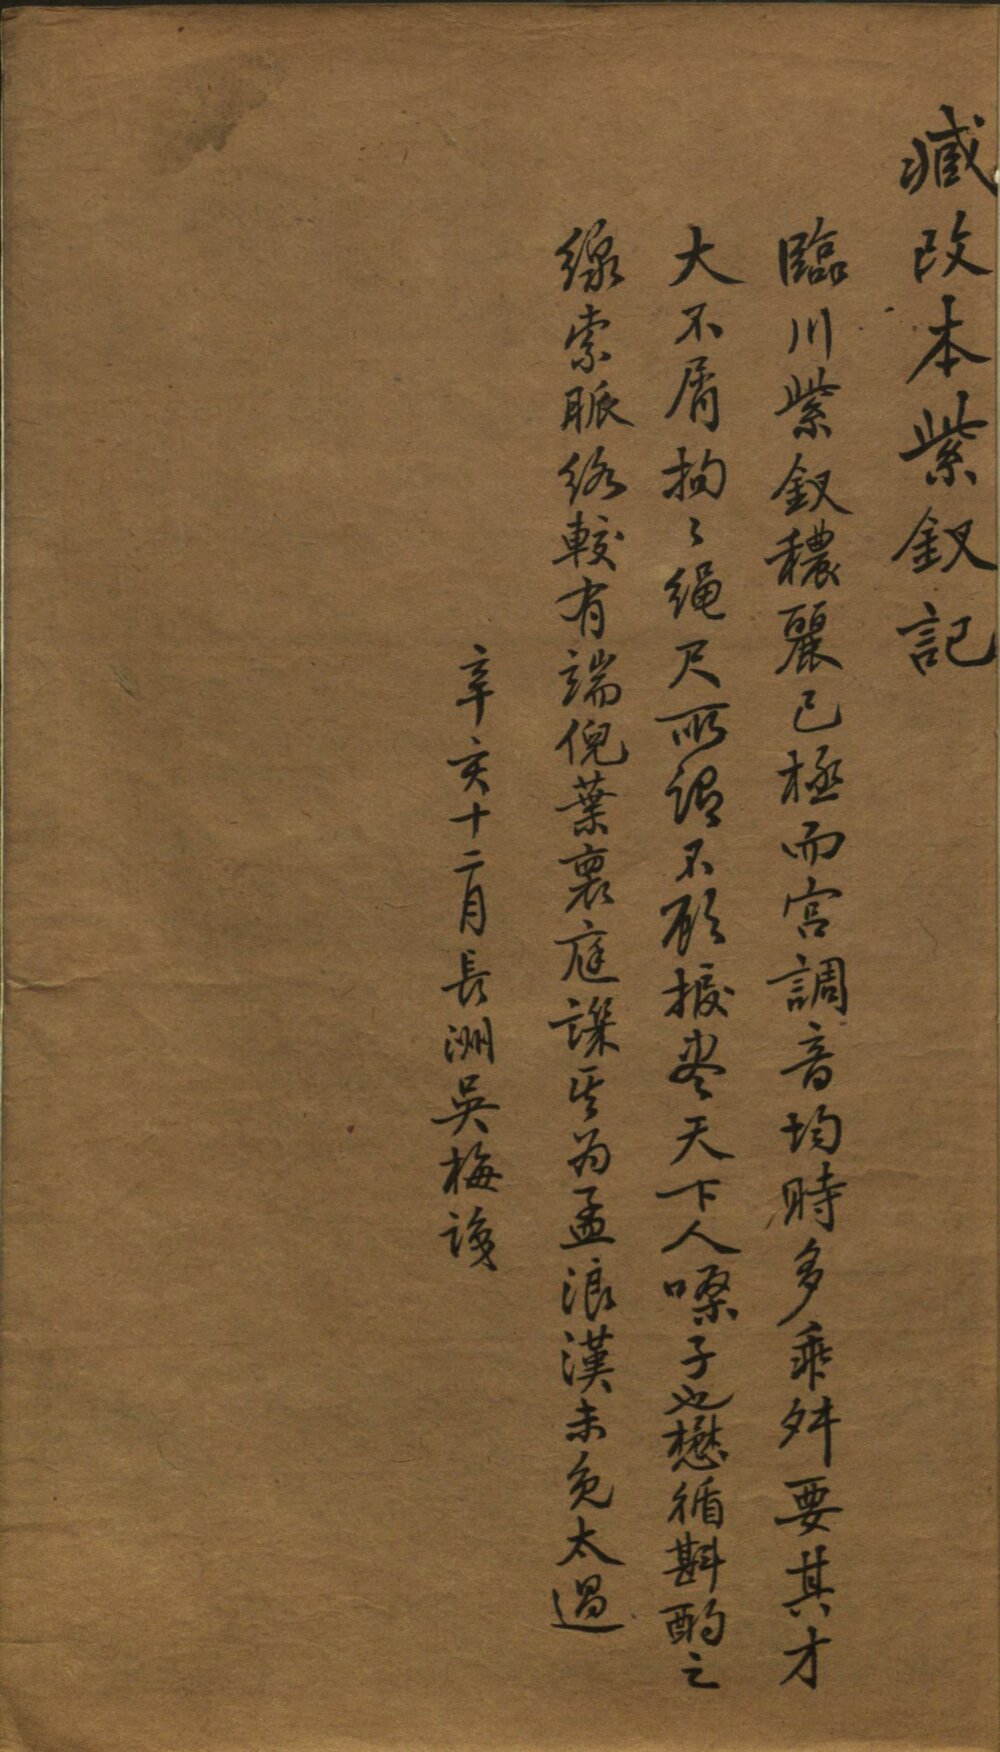 臧改本紫釵記
臨川紫釵穠麗已極而宫調音均時多乖舛要其才
大不屑拘〻繩尺所謂不顧捩盡天下人嗓子也懋循斟酌之
線索脈絡較有端倪葉裏庭譔斥為孟浪漢未免太過
辛亥十二月長洲吳梅識